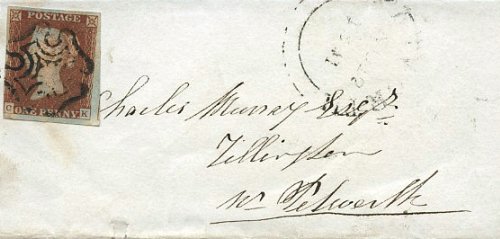 POSTAGE
C ONE PENNY K
Charles Murray Esqr
Tillington
nr Petworth